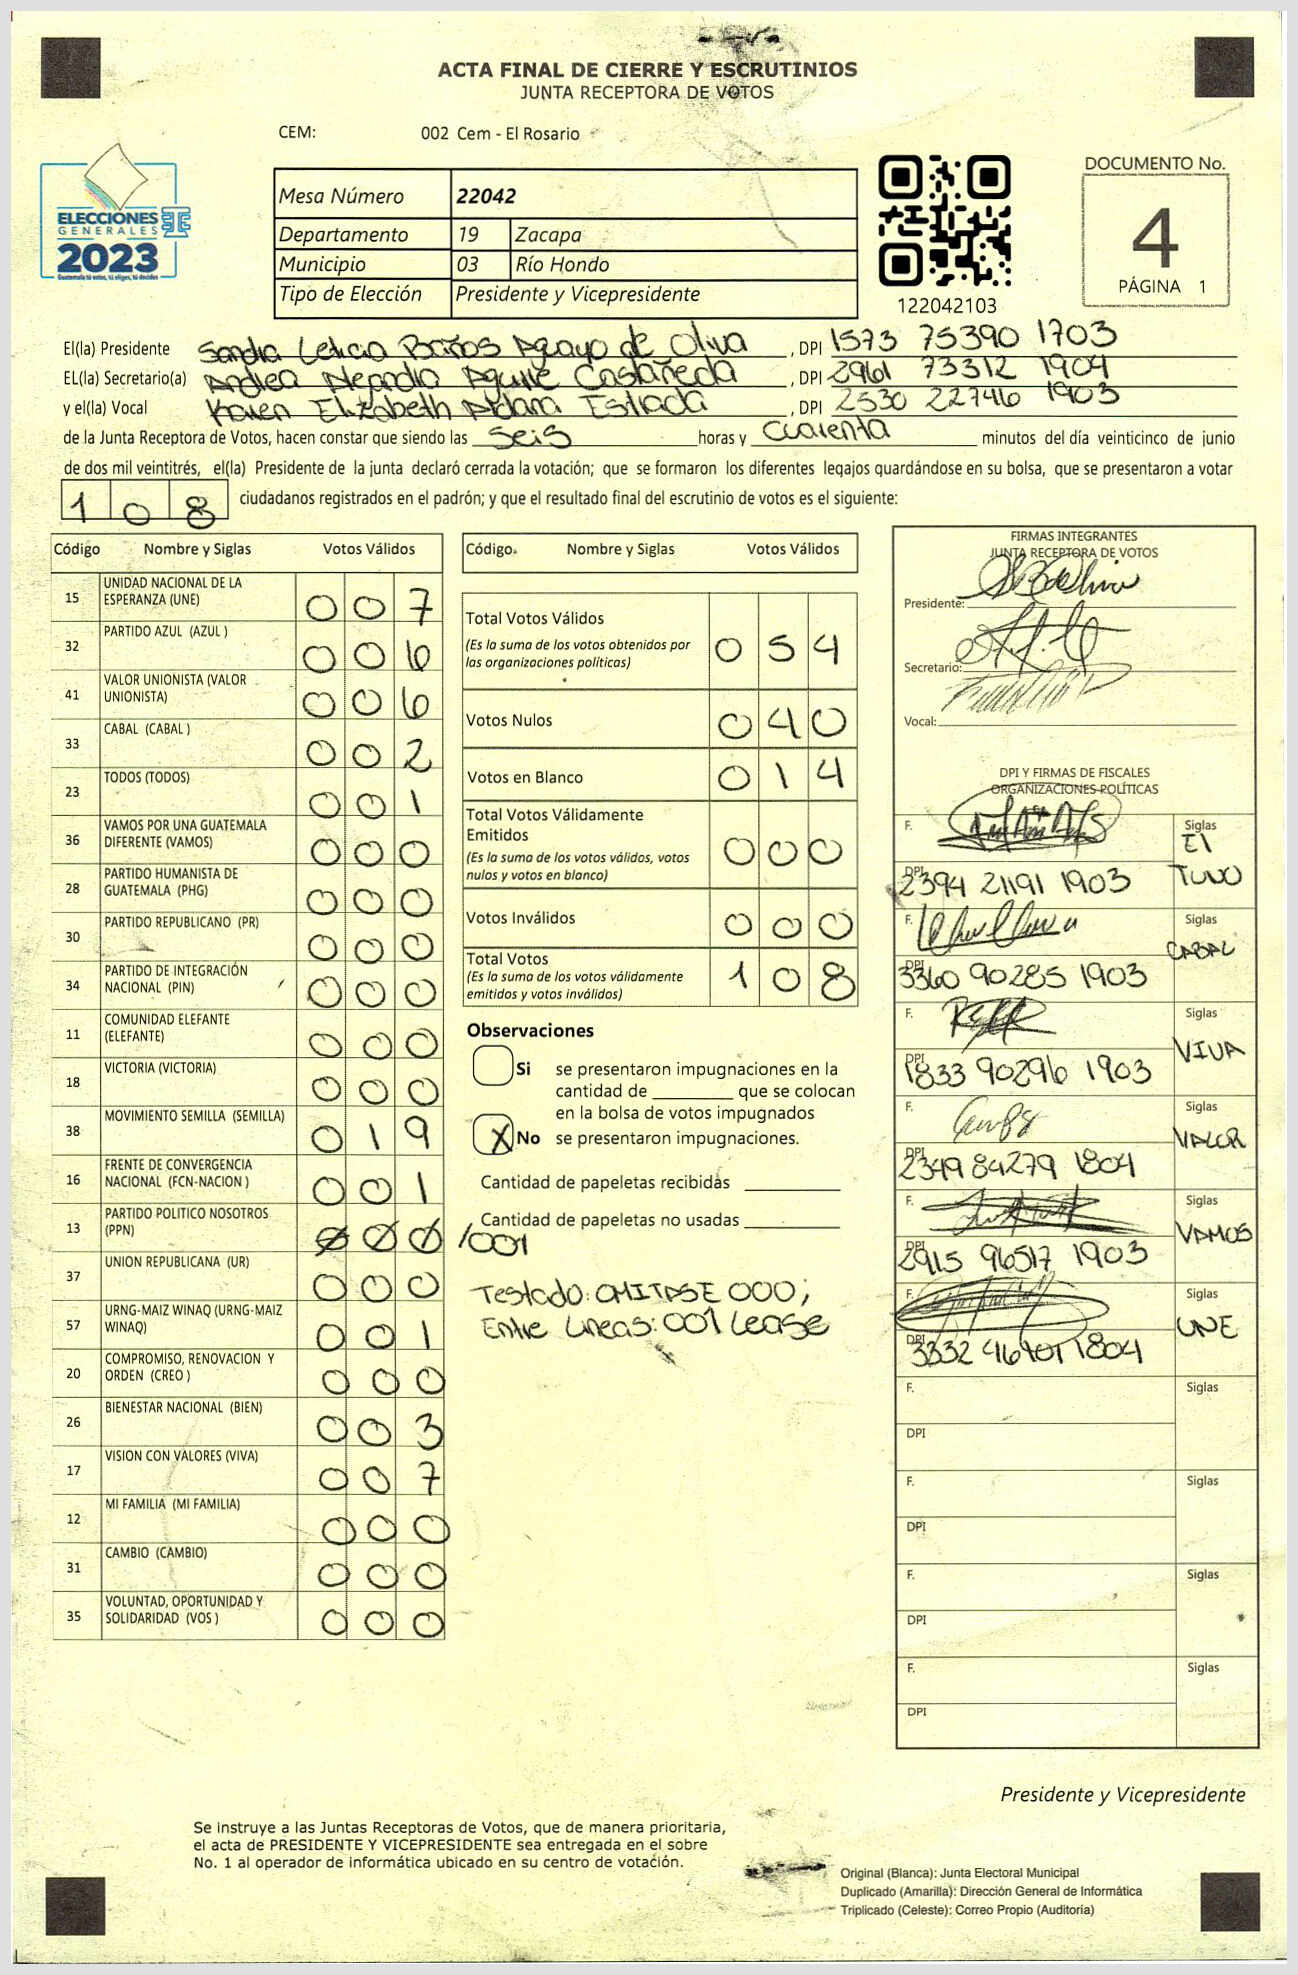 ACTA FINAL DE CIERRE Y ESCRUTINIOS
JUNTA RECEPTORA DE VOTOS
CEM: 002 Cem - El Rosario
ELECCIONES
GENERALES
2023
Guatemala tú votas, tú eliges, tú decides
Mesa Número 22042
Departamento 19 Zacapa
Municipio 03 Río Hondo
Tipo de Elección Presidente y Vicepresidente
122042103
DOCUMENTO No.
4
PÁGINA 1
El(la) Presidente Sandra Leticia Barios Aguayo de Oliva , DPI 1573 75390 1703
EL(la) Secretario(a) Andrea Castañeda , DPI 2961 73312 1904
y el(la) Vocal Karen Elizabeth Aldana Estrada , DPI 2530 22746 1903
de la Junta Receptora de Votos, hacen constar que siendo las seis horas y cuarenta minutos del día veinticinco de junio
de dos mil veintitrés, el(la) Presidente de la junta declaró cerrada la votación; que se formaron los diferentes legajos guardándose en su bolsa, que se presentaron a votar
1 0 8 ciudadanos registrados en el padrón; y que el resultado final del escrutinio de votos es el siguiente:
Código Nombre y Siglas Votos Válidos
15 UNIDAD NACIONAL DE LA
ESPERANZA (UNE) 0 0 7
32 PARTIDO AZUL (AZUL ) 0 0 6
41 VALOR UNIONISTA (VALOR
UNIONISTA) 0 0 6
33 CABAL (CABAL ) 0 0 2
23 TODOS (TODOS) 0 0 1
36 VAMOS POR UNA GUATEMALA
DIFERENTE (VAMOS) 0 0 0
28 PARTIDO HUMANISTA DE
GUATEMALA (PHG) 0 0 0
30 PARTIDO REPUBLICANO (PR) 0 0 0
34 PARTIDO DE INTEGRACIÓN
NACIONAL (PIN) 0 0 0
11 COMUNIDAD ELEFANTE
(ELEFANTE) 0 0 0
18 VICTORIA (VICTORIA) 0 0 0
38 MOVIMIENTO SEMILLA (SEMILLA) 0 1 9
16 FRENTE DE CONVERGENCIA
NACIONAL (FCN-NACION ) 0 0 1
13 PARTIDO POLITICO NOSOTROS
(PPN) 0 0 0 /001
37 UNION REPUBLICANA (UR) 0 0 0
57 URNG-MAIZ WINAQ (URNG-MAIZ
WINAQ) 0 0 1
20 COMPROMISO, RENOVACION Y
ORDEN (CREO ) 0 0 0
26 BIENESTAR NACIONAL (BIEN) 0 0 3
17 VISION CON VALORES (VIVA) 0 0 7
12 MI FAMILIA (MI FAMILIA) 0 0 0
31 CAMBIO (CAMBIO) 0 0 0
35 VOLUNTAD, OPORTUNIDAD Y
SOLIDARIDAD (VOS ) 0 0 0
Código. Nombre y Siglas Votos Válidos
Total Votos Válidos 0 5 4
(Es la suma de los votos obtenidos por
las organizaciones políticas)
Votos Nulos 0 4 0
Votos en Blanco 0 1 4
Total Votos Válidamente
Emitidos 0 0 0
(Es la suma de los votos válidos, votos
nulos y votos en blanco)
Votos Inválidos 0 0 0
Total Votos 1 0 8
(Es la suma de los votos válidamente
emitidos y votos inválidos)
Observaciones
Si se presentaron impugnaciones en la
cantidad de ________ que se colocan
en la bolsa de votos impugnados
X No se presentaron impugnaciones.
Cantidad de papeletas recibidas
Cantidad de papeletas no usadas
Testado: OMITASE 000;
Entre Lineas: 001 LEASE
FIRMAS INTEGRANTES
JUNTA RECEPTORA DE VOTOS
Presidente:
Secretario:
Vocal:
DPI Y FIRMAS DE FISCALES
ORGANIZACIONES POLÍTICAS
F. Siglas El
DPI 2394 21191 1903 TUNO
F. Siglas CABAL
DPI 3360 90285 1903
F. Siglas VIVA
DPI 1833 90296 1903
F. Siglas VALOR
DPI 2349 84279 1804
F. Siglas VAMOS
DPI 2915 96517 1903
F. Siglas UNE
DPI 3332 46901 1804
F. Siglas
DPI
F. Siglas
DPI
F. Siglas
DPI
F. Siglas
DPI
Presidente y Vicepresidente
Se instruye a las Juntas Receptoras de Votos, que de manera prioritaria,
el acta de PRESIDENTE Y VICEPRESIDENTE sea entregada en el sobre
No. 1 al operador de informática ubicado en su centro de votación.
Original (Blanca): Junta Electoral Municipal
Duplicado (Amarilla): Dirección General de Informática
Triplicado (Celeste): Correo Propio (Auditoría)